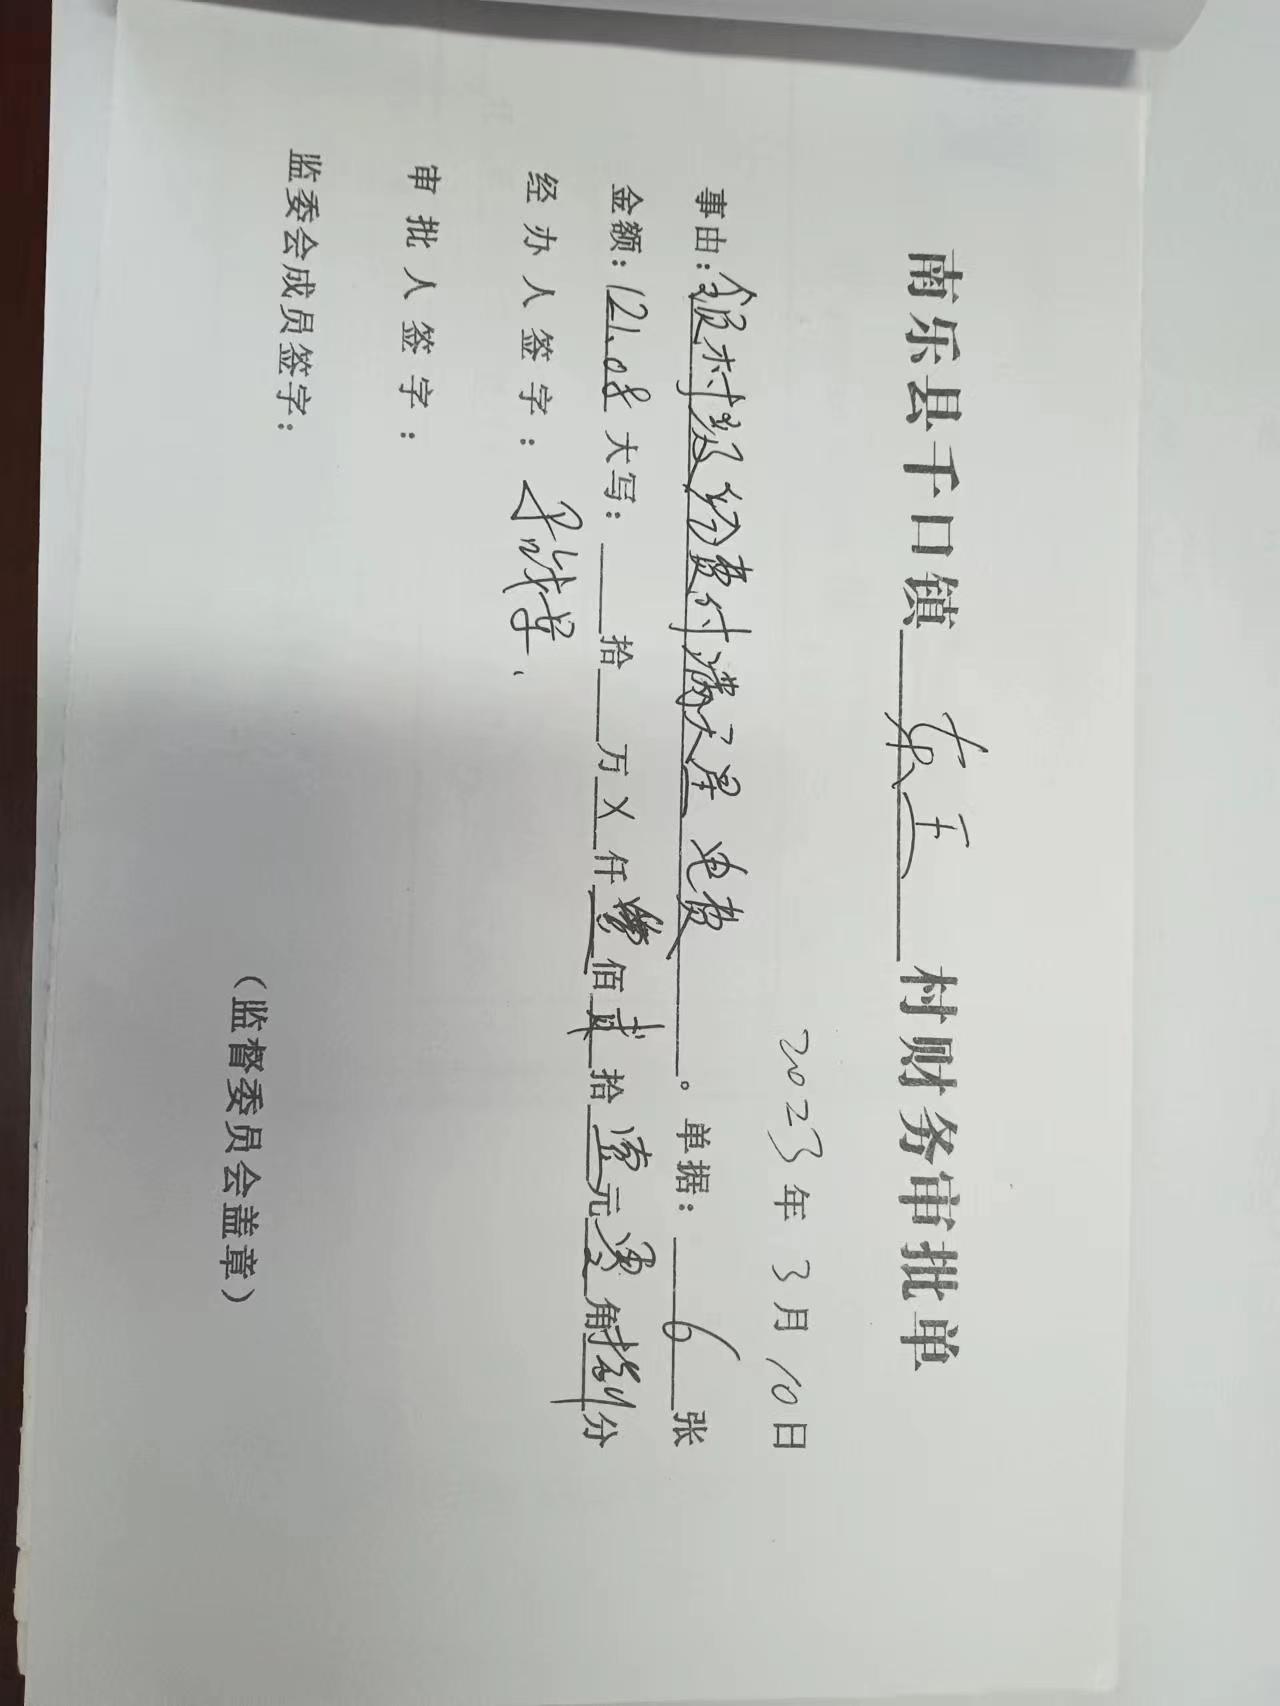 南乐县千口镇 东王 村财务审批单
2023年3月10日
事由:领村级经费付满天星电费。单据:6张
金额:121.08大写:拾万X仟壹佰贰拾壹元零角捌分
经办人签字:
审批人签字:
监委会成员签字:
(监督委员会盖章)